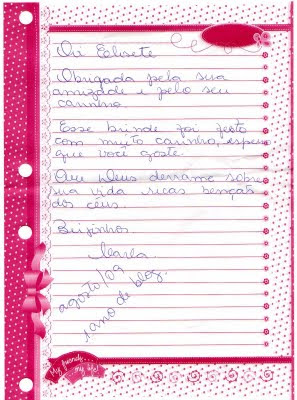 Oi Elisete
Obrigada pela sua
amizade e pelo seu
carinho.
Esse brinde foi feito
com muito carinho, espero
que você goste.
Que Deus derrame sobre
sua vida ricas bençãos
dos céus.
Beijinhos
Carla.
agosto/09
1 ano de blog.
My friends...
my life!